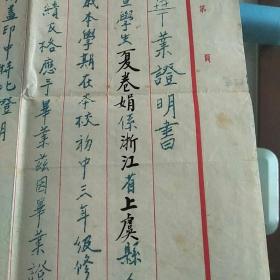 第 頁
業證明書
查學生夏卷娟係浙江省上虞縣人
本學期在本校初中三年級修
績及格應予畢業茲因畢業證
蓋印中特此證明